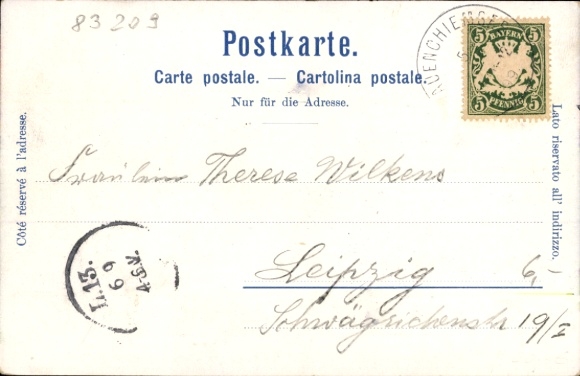 83 209
Postkarte.
Carte postale. — Cartolina postale.
Nur für die Adresse.
BAYERN
5 5
PFENNIG
Côté réservé à l'adresse.
Lato riservato all' indirizzo.
Fräulein Therese Wilkens
Leipzig 6,-
Schwägrichenstr 19/I
L.13.
6 9